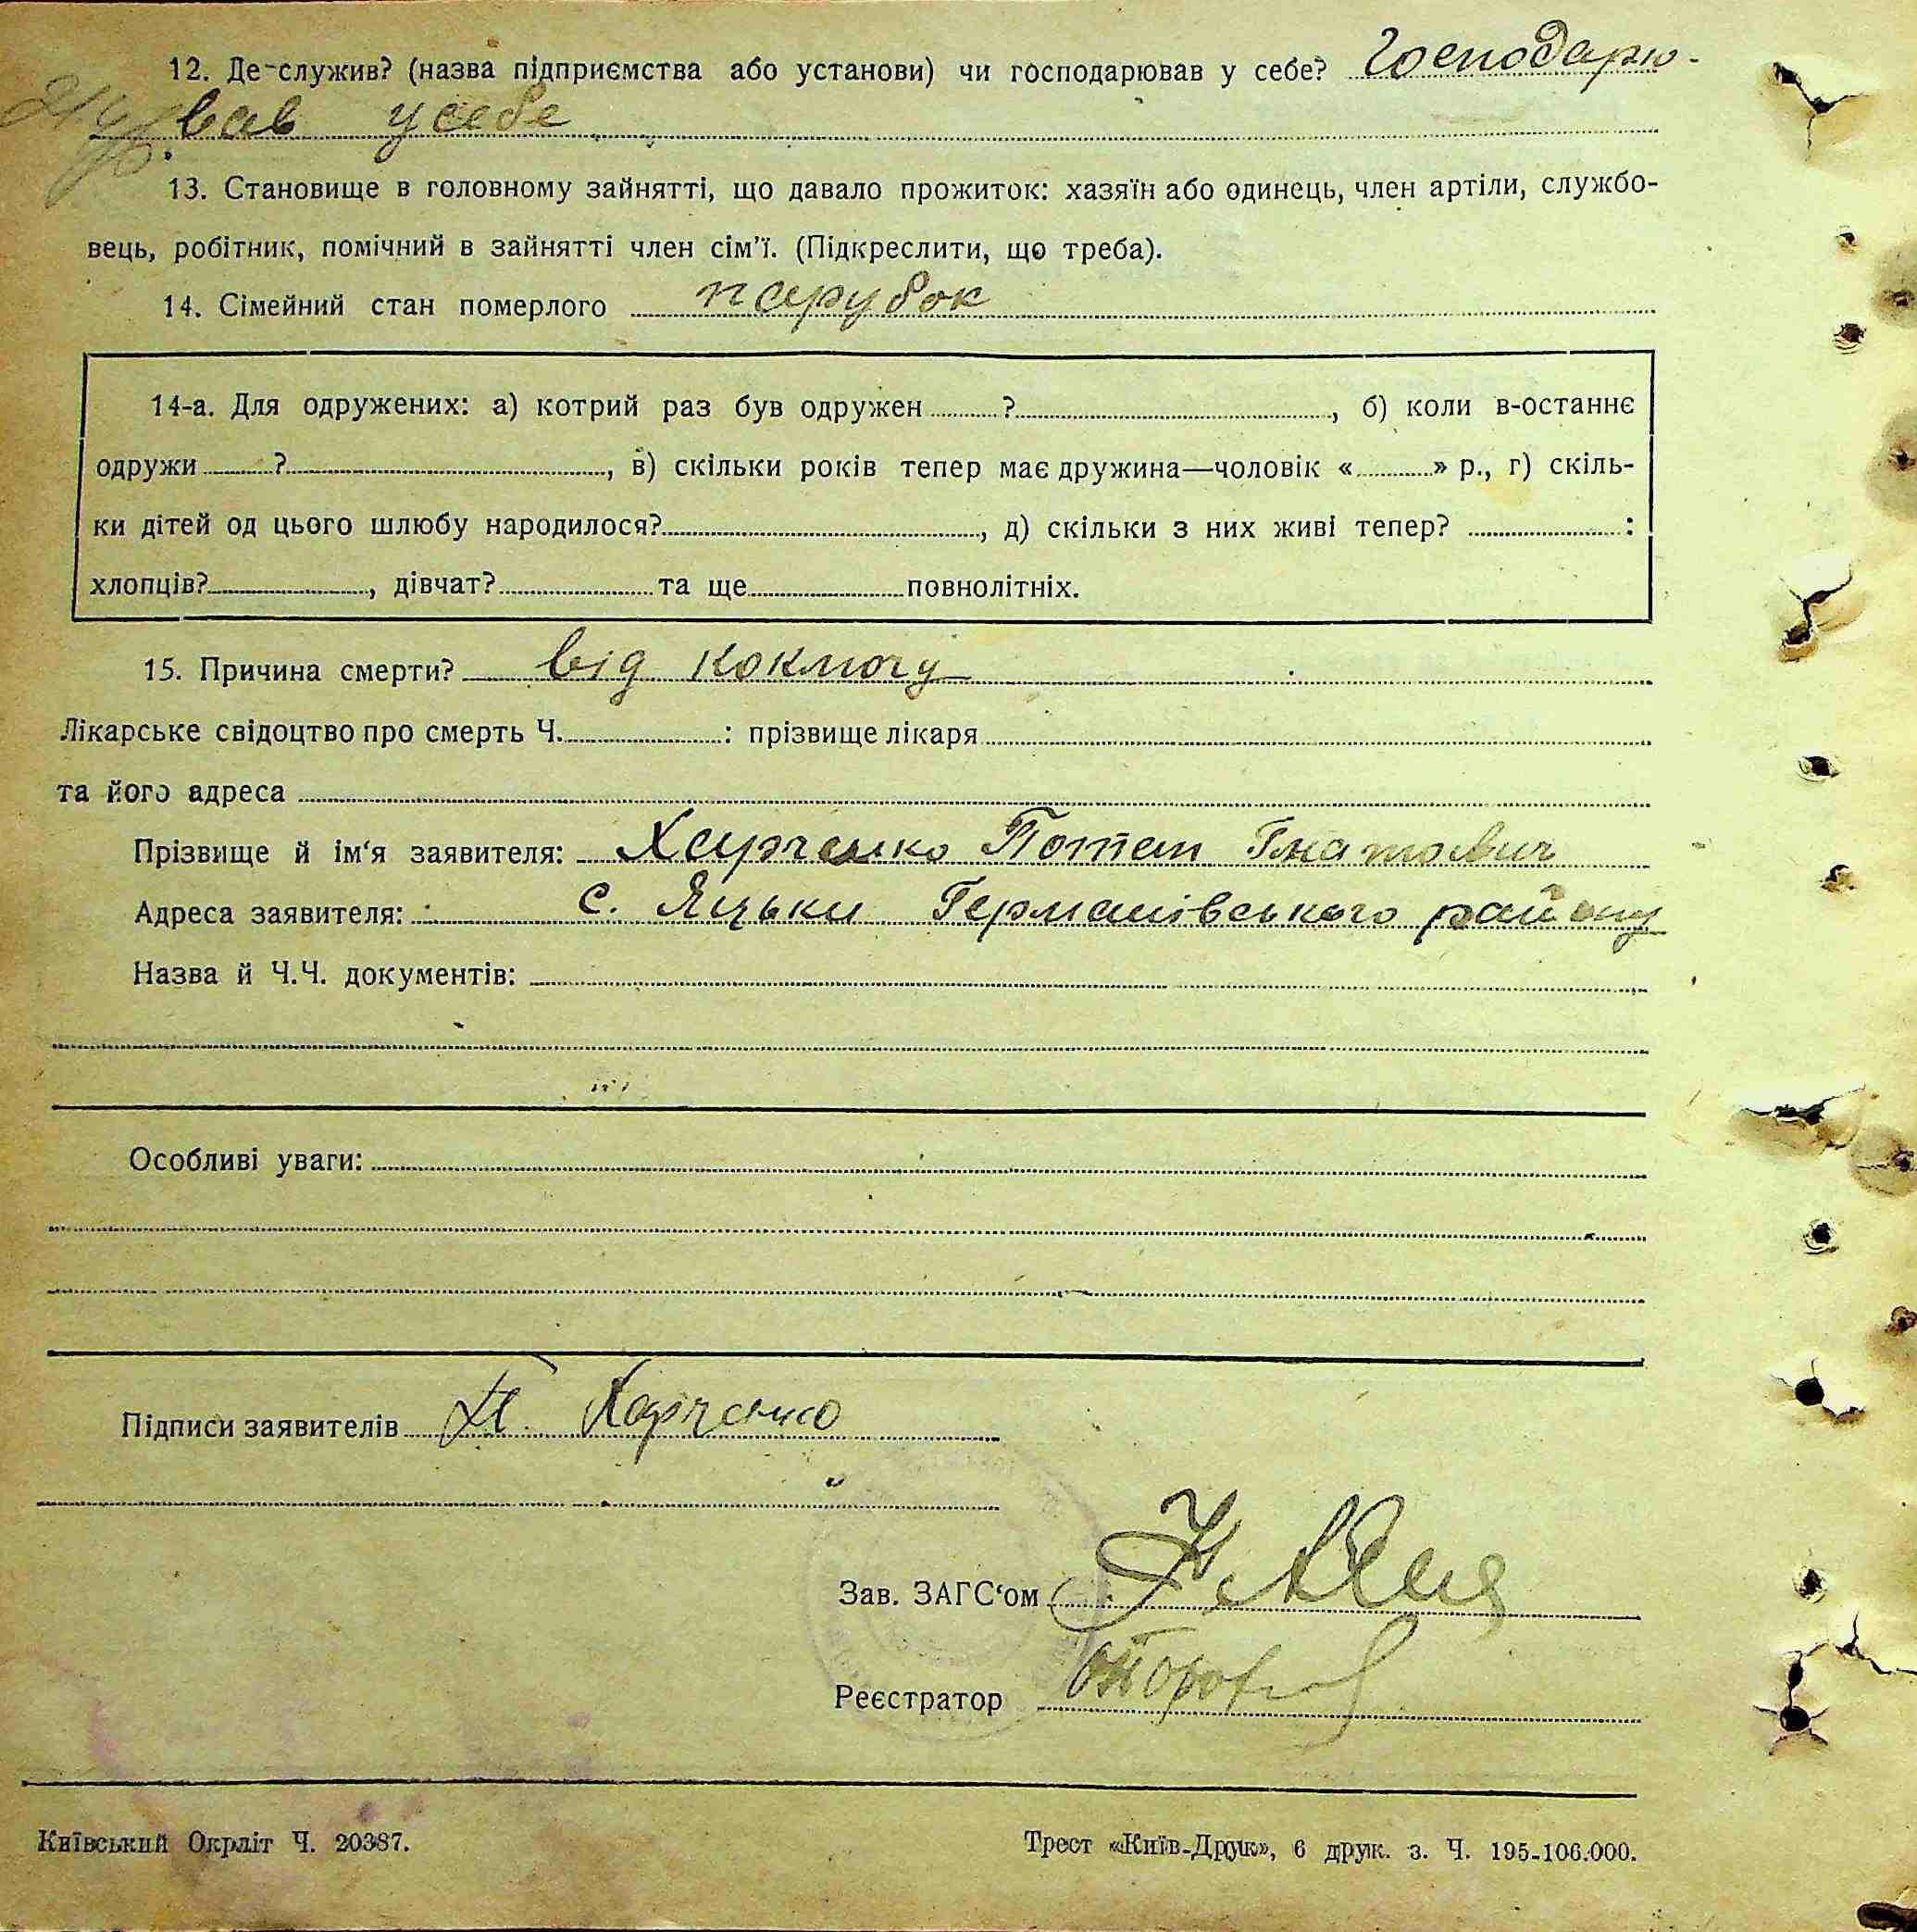 12. Де-служив? (назва підприємства або установи) чи господарював у себе? Господарю-
вав у себе
13. Становище в головному зайнятті, що давало прожиток: хазяїн або одинець, член артіли, службо-
вець, робітник, помічний в зайнятті член сім'ї. (Підкреслити, що треба).
14. Сімейний стан померлого парубок
14-а. Для одружених: а) котрий раз був одружен ? , б) коли в-останнє
одружи ? , в) скільки років тепер має дружина—чоловік « » р., г) скіль-
ки дітей од цього шлюбу народилося? , д) скільки з них живі тепер? :
хлопців? , дівчат? та ще повнолітніх.
15. Причина смерти? від коклюгу
Лікарське свідоцтво про смерть Ч. : прізвище лікаря
та його адреса
Прізвище й ім'я заявителя: Харченко Потап Гнатович
Адреса заявителя: с. Яцьки Германівського району
Назва й Ч.Ч. документів:
Особливі уваги:
Підписи заявителів П. Харченко
Зав. ЗАГС'ом
Реєстратор
Київський Окрліт Ч. 20387.
Трест «Київ-Друк», 6 друк. з. Ч. 195-106.000.